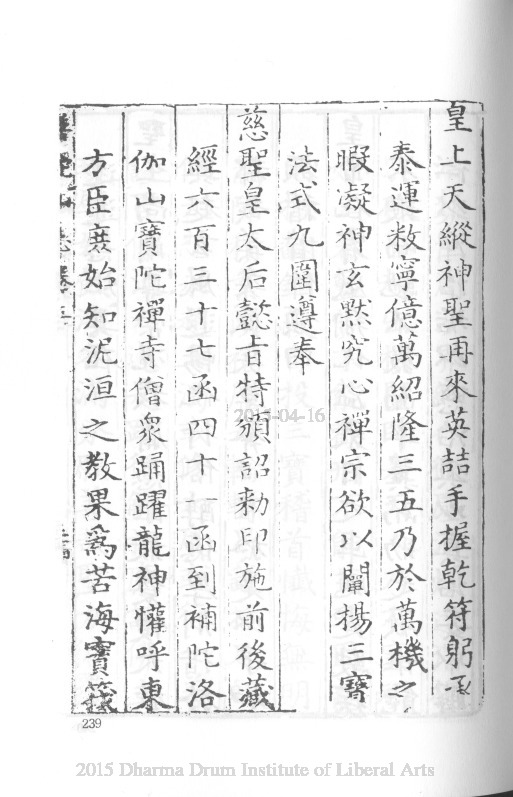 皇上天縱神聖再來英喆手握乾符躬承
泰運敉寧億萬紹隆三五乃於萬機之
暇凝神玄默究心禪宗欲以闡揚三寶
法式九圍遵奉
慈聖皇太后懿旨特頒詔勅印施前後藏
經六百三十七函四十一函到補陀洛
伽山寶陀禪寺僧衆踊躍龍神懽呼東
方臣庶始知泥洹之教果爲苦海寶筏
239
2015-04-16
2015 Dharma Drum Institute of Liberal Arts